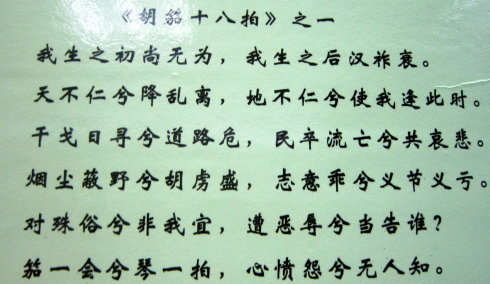 《胡笳十八拍》之一
我生之初尚无为，我生之后汉祚衰。
天不仁兮降乱离，地不仁兮使我逢此时。
干戈日寻兮道路危，民卒流亡兮共哀悲。
烟尘蔽野兮胡虏盛，志意乖兮义节义亏。
对殊俗兮非我宜，遭恶辱兮当告谁？
笳一会兮琴一拍，心愤怨兮无人知。